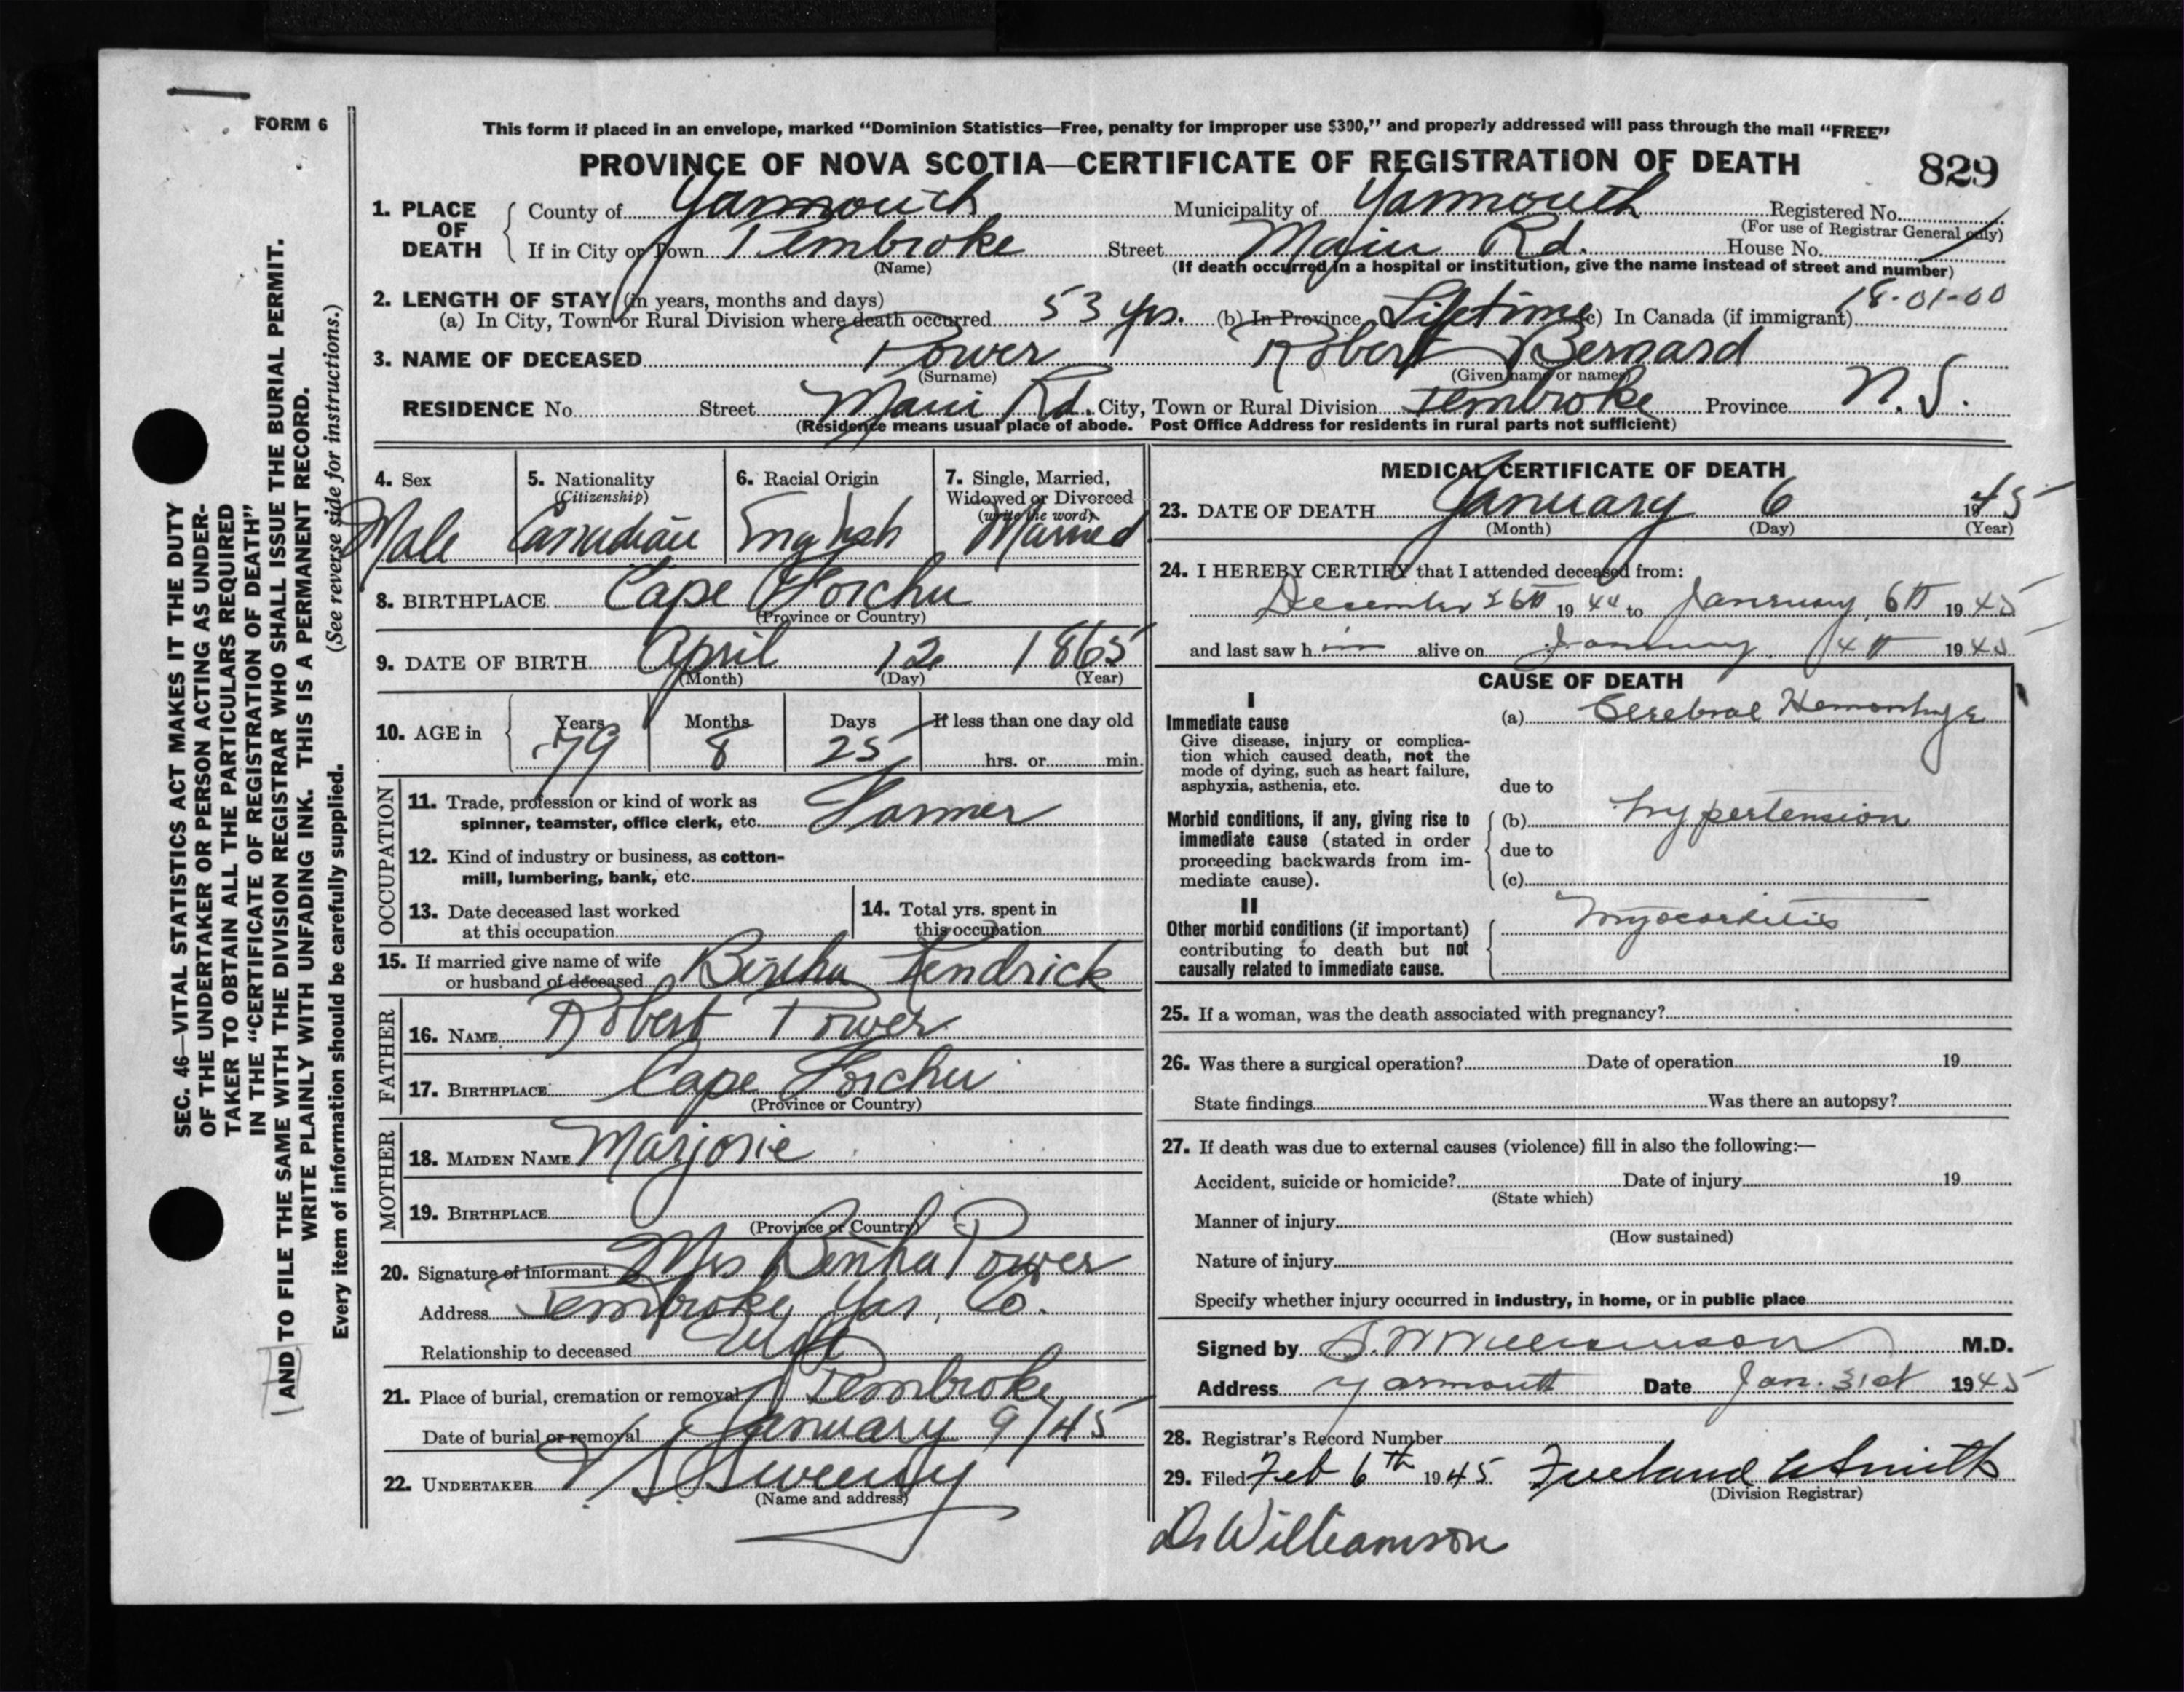 FORM 6
This form if placed in an envelope, marked "Dominion Statistics—Free, penalty for improper use $300," and properly addressed will pass through the mail "FREE"
PROVINCE OF NOVA SCOTIA—CERTIFICATE OF REGISTRATION OF DEATH 829
1. PLACE OF DEATH County of Yarmouth Municipality of Yarmouth Registered No.
(For use of Registrar General only)
If in City or Town Pembroke Street Main Rd. House No.
(Name) (If death occurred in a hospital or institution, give the name instead of street and number)
2. LENGTH OF STAY (in years, months and days) 18-01-00
(a) In City, Town or Rural Division where death occurred 53 yrs. (b) In Province Lifetime (c) In Canada (if immigrant)
3. NAME OF DECEASED Power Robert Bernard
(Surname) (Given name or names)
RESIDENCE No. Street Main Rd. City, Town or Rural Division Pembroke Province N.S.
(Residence means usual place of abode. Post Office Address for residents in rural parts not sufficient)
4. Sex 5. Nationality 6. Racial Origin 7. Single, Married,
(Citizenship) Widowed or Divorced
(write the word)
Male Canadian English Married
8. BIRTHPLACE Cape Forchu
(Province or Country)
9. DATE OF BIRTH April 12 1865
(Month) (Day) (Year)
10. AGE in Years Months Days If less than one day old
79 8 25 hrs. or min.
OCCUPATION
11. Trade, profession or kind of work as
spinner, teamster, office clerk, etc. Farmer
12. Kind of industry or business, as cotton-
mill, lumbering, bank, etc.
13. Date deceased last worked 14. Total yrs. spent in
at this occupation this occupation
15. If married give name of wife
or husband of deceased Bertha Kendrick
FATHER
16. NAME Robert Power
17. BIRTHPLACE Cape Forchu
(Province or Country)
MOTHER
18. MAIDEN NAME Marjorie
19. BIRTHPLACE
(Province or Country)
20. Signature of informant Mrs Bertha Power
Address Pembroke, Yar, Co.
Relationship to deceased Wife
21. Place of burial, cremation or removal Pembroke
Date of burial or removal January 9/45
22. UNDERTAKER V. S. Sweeny
(Name and address)
MEDICAL CERTIFICATE OF DEATH
23. DATE OF DEATH January 6 1945
(Month) (Day) (Year)
24. I HEREBY CERTIFY that I attended deceased from:
December 26th 1944 to January 6th 1945
and last saw him alive on January 4th 1945
CAUSE OF DEATH
I
Immediate cause (a) Cerebral Hemorrhage
Give disease, injury or complica-
tion which caused death, not the
mode of dying, such as heart failure,
asphyxia, asthenia, etc. due to
Morbid conditions, if any, giving rise to (b) hypertension
immediate cause (stated in order
proceeding backwards from im- due to
mediate cause). (c)
II
Other morbid conditions (if important) Myocarditis
contributing to death but not
causally related to immediate cause.
25. If a woman, was the death associated with pregnancy?
26. Was there a surgical operation? Date of operation 19
State findings Was there an autopsy?
27. If death was due to external causes (violence) fill in also the following:—
Accident, suicide or homicide? Date of injury 19
(State which)
Manner of injury
(How sustained)
Nature of injury
Specify whether injury occurred in industry, in home, or in public place
Signed by S. W Williamson M.D.
Address Yarmouth Date Jan. 31st 1945
28. Registrar's Record Number
29. Filed Feb 6th 1945 Freeland A Smith
(Division Registrar)
Dr Williamson
SEC. 46—VITAL STATISTICS ACT MAKES IT THE DUTY
OF THE UNDERTAKER OR PERSON ACTING AS UNDER-
TAKER TO OBTAIN ALL THE PARTICULARS REQUIRED
IN THE "CERTIFICATE OF REGISTRATION OF DEATH"
AND TO FILE THE SAME WITH THE DIVISION REGISTRAR WHO SHALL ISSUE THE BURIAL PERMIT.
WRITE PLAINLY WITH UNFADING INK. THIS IS A PERMANENT RECORD.
Every item of information should be carefully supplied. (See reverse side for instructions.)